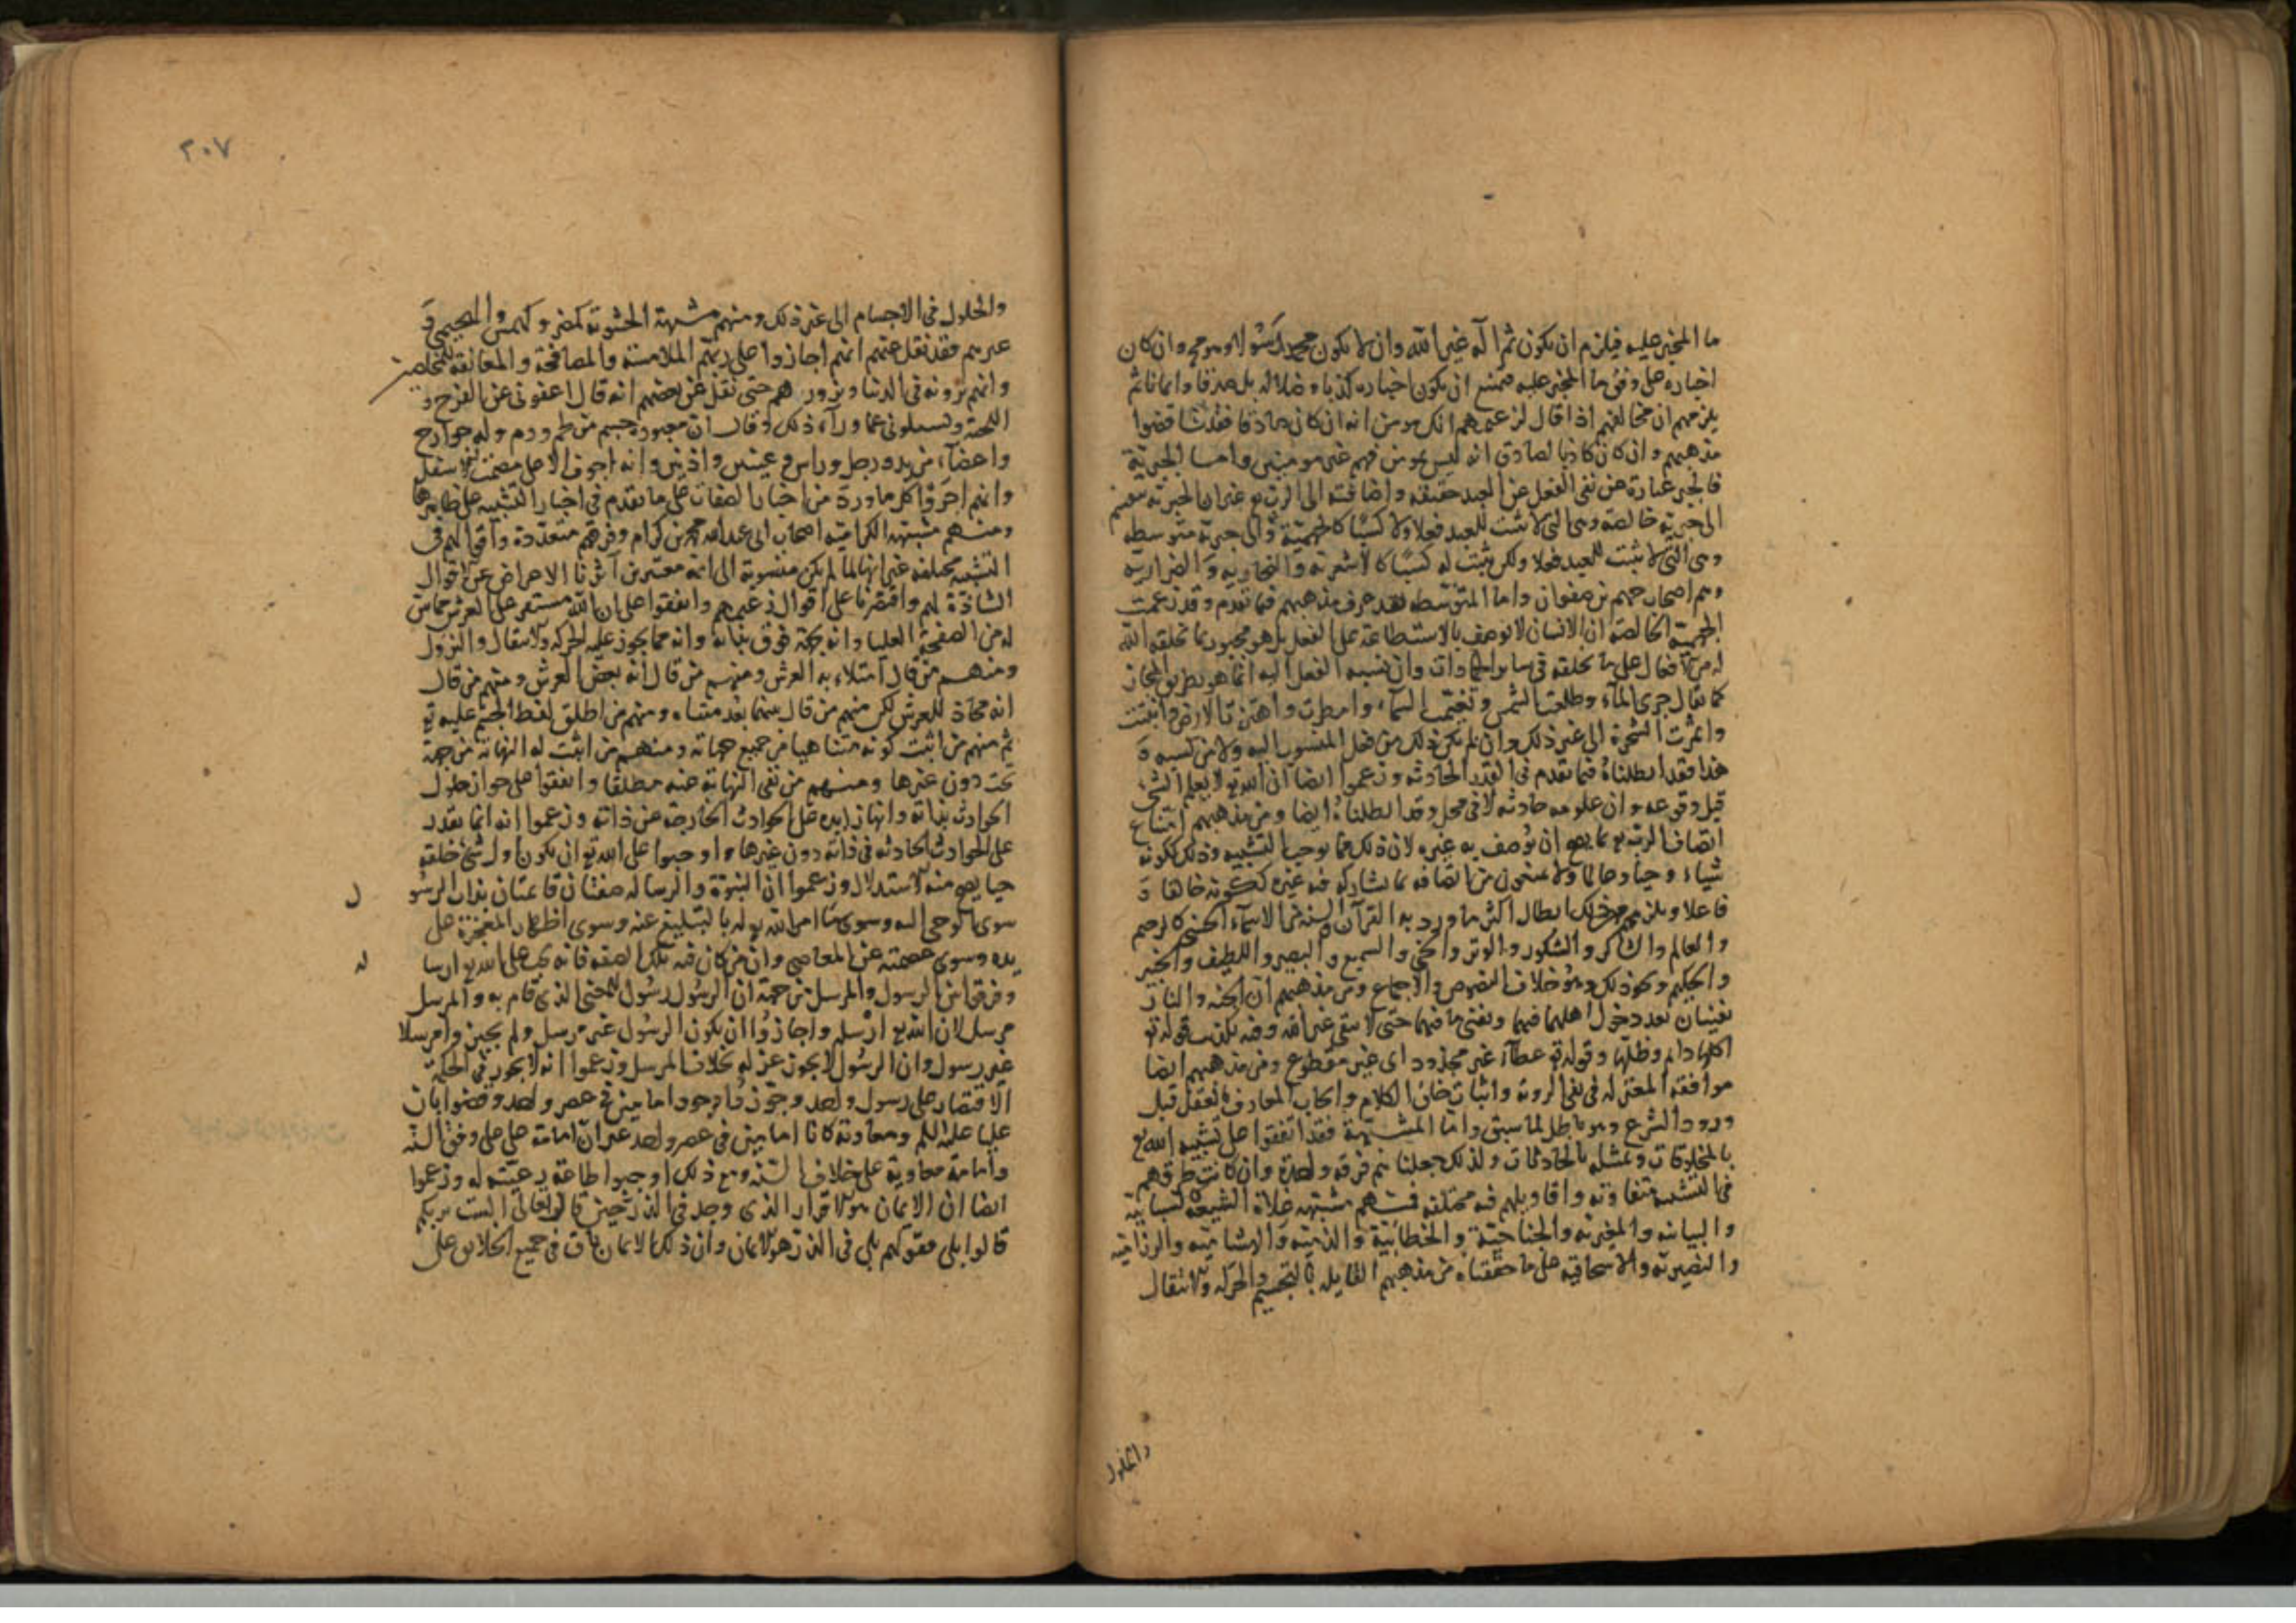 ما المخبر عليه فيلزم ان يكون ثم اله غير الله وان لا يكون محمد رسولا وهو مح وان كان
اخباره على وفق ما المخبر عليه فيمتنع ان يكون اخباره كذبا وضلاله بل صدقا وايمانا ثم
يلزمهم ان مخالفهم اذا قال لزعيمهم انك مومن انه ان كان صادقا فقد ناقضوا
مذهبهم وان كان كاذبا لصادق انه ليس بمومن فهم غير مومنين واما الجبرية
فالجبر عبارة عن نفى الفعل عن العبد حقيقه واضافته الى الرب تع غير ان الجبريه تنقسم
الى جبريه خالصه وهى التى لا تثبت للعبد فعلا ولا كسبًا كالجهميّة والى جبريّة متوسطه
وهى التى لا تثبت للعبد فعلا ولكن تثبت له كسبًا كالاشعريه والنجاريه والضراريه
وهم اصحاب جهم بن صفوان واما المتوسّطه فقد عرف مذهبهم فيما تقدم وقد زعمت
الجهميّة الخالصه ان الانسان لا يوصف بالاستطاعة على الفعل بل هو مجبور بما يخلقه الله
له من الافعال على ما يخلقه فى ساير الجمادات وان نسبه الفعل اليه انما هو بطريق المجاز
كما يقال جرى الماء وطلعت الشمس وتغيّمت السماء وامطرت واهتزت الارض وانبتت
واثمرت الشجرة الى غير ذلك وان لم يكن ذلك من فعل المنسوب اليه ولا من كسبه و
هذا فقد ابطلناه فيما تقدم فى القدر الحادثه وزعموا ايضا ان الله تع لا يعلم الشى
قبل وقوعه وان علومه حادثه لا فى محل وقد ابطلناه ايضا ومن مذهبهم امتناع
اتصاف الرب تع بما يصح ان يوصف به غيره لان ذلك مما يوجب التشبيه وذلك ككونه
شياء وحيا وعالما ولا يمنعون من اتصافه بما لا يشاركه فيه غيره ككونه خالقا و
فاعلا ويلزمهم من ذلك ابطال اكثر ما ورد به القران والسنه من الاسماء الحسنى كالرحيم
والعالم والشاكر والشكور والوتر والحى والسميع والبصير واللطيف والخبير
والحكيم ونحو ذلك وهو خلاف النصوص والاجماع ومن مذهبهم ان الجنه والنار
تفنيان بعد دخول اهلهما فيهما وتفنى ما فيهما حتى لا يبقى غير الله وفيه تكذيب قوله تع
اكلها دايم وظلها وقوله تع عطاء غير مجذوذ اى غير مقطوع ومن مذهبهم ايضا
موافقه المعتزله فى نفى الرويه واثبات خلق الكلام وايجاب المعارف بالعقل قبل
ورود الشرع وهو باطل لما سبق واما المشبّهة فقد اتفقوا على تشبيه الله تع
بالمخلوقات وتمثيله بالحادثات ولذلك جعلناهم فرقه واحدة وان كانت طرقهم
فى التشبيه متفاوته واقاويلهم فيه مختلفه فمنهم مشبهه غلاة الشيعة كالسبابية
والبيانيه والمغيريه والجناحيّة والخطابيّة والذميّه والهشاميّه والرزاميّه
والنصيريّه والاسحاقيه على ما حققناه من مذهبهم القايله بالتجسيم والحركه والانتقال
والحلول
٢٠٧
والحلول فى الاجسام الى غير ذلك ومنهم مشبهة الحشويّة كمضر وكهمس والهجيمى و
غيرهم فقد نقل عنهم انهم اجازوا على ربّهم الملامسة والمصافحة والمعانقة للمخلصين
وانهم يزورونه فى الدنيا ويزورهم حتى نقل عن بعضهم انه قال اعفونى عن الفرج و
اللحية وتسلونى عما وراء ذلك وقال ان معبوده جسم من لحم ودم وله جوارح
واعضاء من يد ورجل وراس وعينين واذنين وانه اجوف الاعلى مصمت الاسفل
وانهم اجروا كل ما ورد من اخبار الصفات على ما تقدم فى اخبار التشبيه على ظاهرها
ومنهم مشبهة الكراميّه اصحاب ابى عبد الله محمد بن كرام وفرقهم متعدّدة واقوالهم فى
التشبيه مختلفه غير انها لما لم يكن منسوبة الى ائمة معتبرين آثرنا الاعراض عن اقوال
الشاذة لهم واقتصرنا على اقوال زعيمهم واتفقوا على ان الله مستقر على العرش مماس
له من الصفحة العليا وانه بجهة فوق بذاته وانه مما يجوز عليه الحركه والانتقال والنزول
ومنهم من قال امتلاء به العرش ومنهم من قال انه بعض العرش ومنهم من قال
انه محاذ للعرش لكن منهم من قال بينهما بعد متناه ومنهم من اطلق لفظ الجسم عليه تع
ثم منهم من اثبت كونه متناهيا من جميع جهاته ومنهم من اثبت له النهاية من جهة
تحت دون غيرها ومنهم من نفى النهاية عنه مطلقًا واتفقوا على جواز حلول
الحوادث بذاته وانها زايده على الحوادث الخارجة عن ذاته وزعموا انه انما يقدر
على الحوادث الحادثه فى ذاته دون غيرها واوجبوا على الله تع ان يكون اول شى خلقه
حيا يصح منه الاستدلال وزعموا ان النبوّة والرساله صفتان قائمتان بذات الرسو ل
سوى الوحى اليه وسوى امر الله تع له بالتبليغ عنه وسوى اظهار المعجزة على
يده وسوى عصمته عن المعاصى وان من كان فيه تلك الصفه فانه يجب على الله تع ارسا له
وفرقوا بين الرسول والمرسل من جهة ان الرسول رسول للمعنى الذى قام به والمرسل
مرسل لان الله تع ارسله واجازوا ان يكون الرسول غير مرسل ولم يجيزوا مرسلا
غير رسول وان الرسول لا يجوز عزله بخلاف المرسل وزعموا انه لا يجوز فى الحكمة
الاقتصار على رسول واحد وجوّزوا وجود امامين فى عصر واحد وقضوا بان
عليا عليه السلم ومعاوية كانا امامين فى عصر واحد غير ان امامة على على وفق السنه
وامامة معاوية على خلاف السنه ومع ذلك اوجبوا طاعة رعيّته له وزعموا
ايضا ان الايمان هو الاقرار الذى وجد فى الذر حين قال تعالى الست بربكم
قالوا بلى فقولهم بلى فى الذر هو الايمان وان ذلك الايمان باق فى جميع الخلايق على